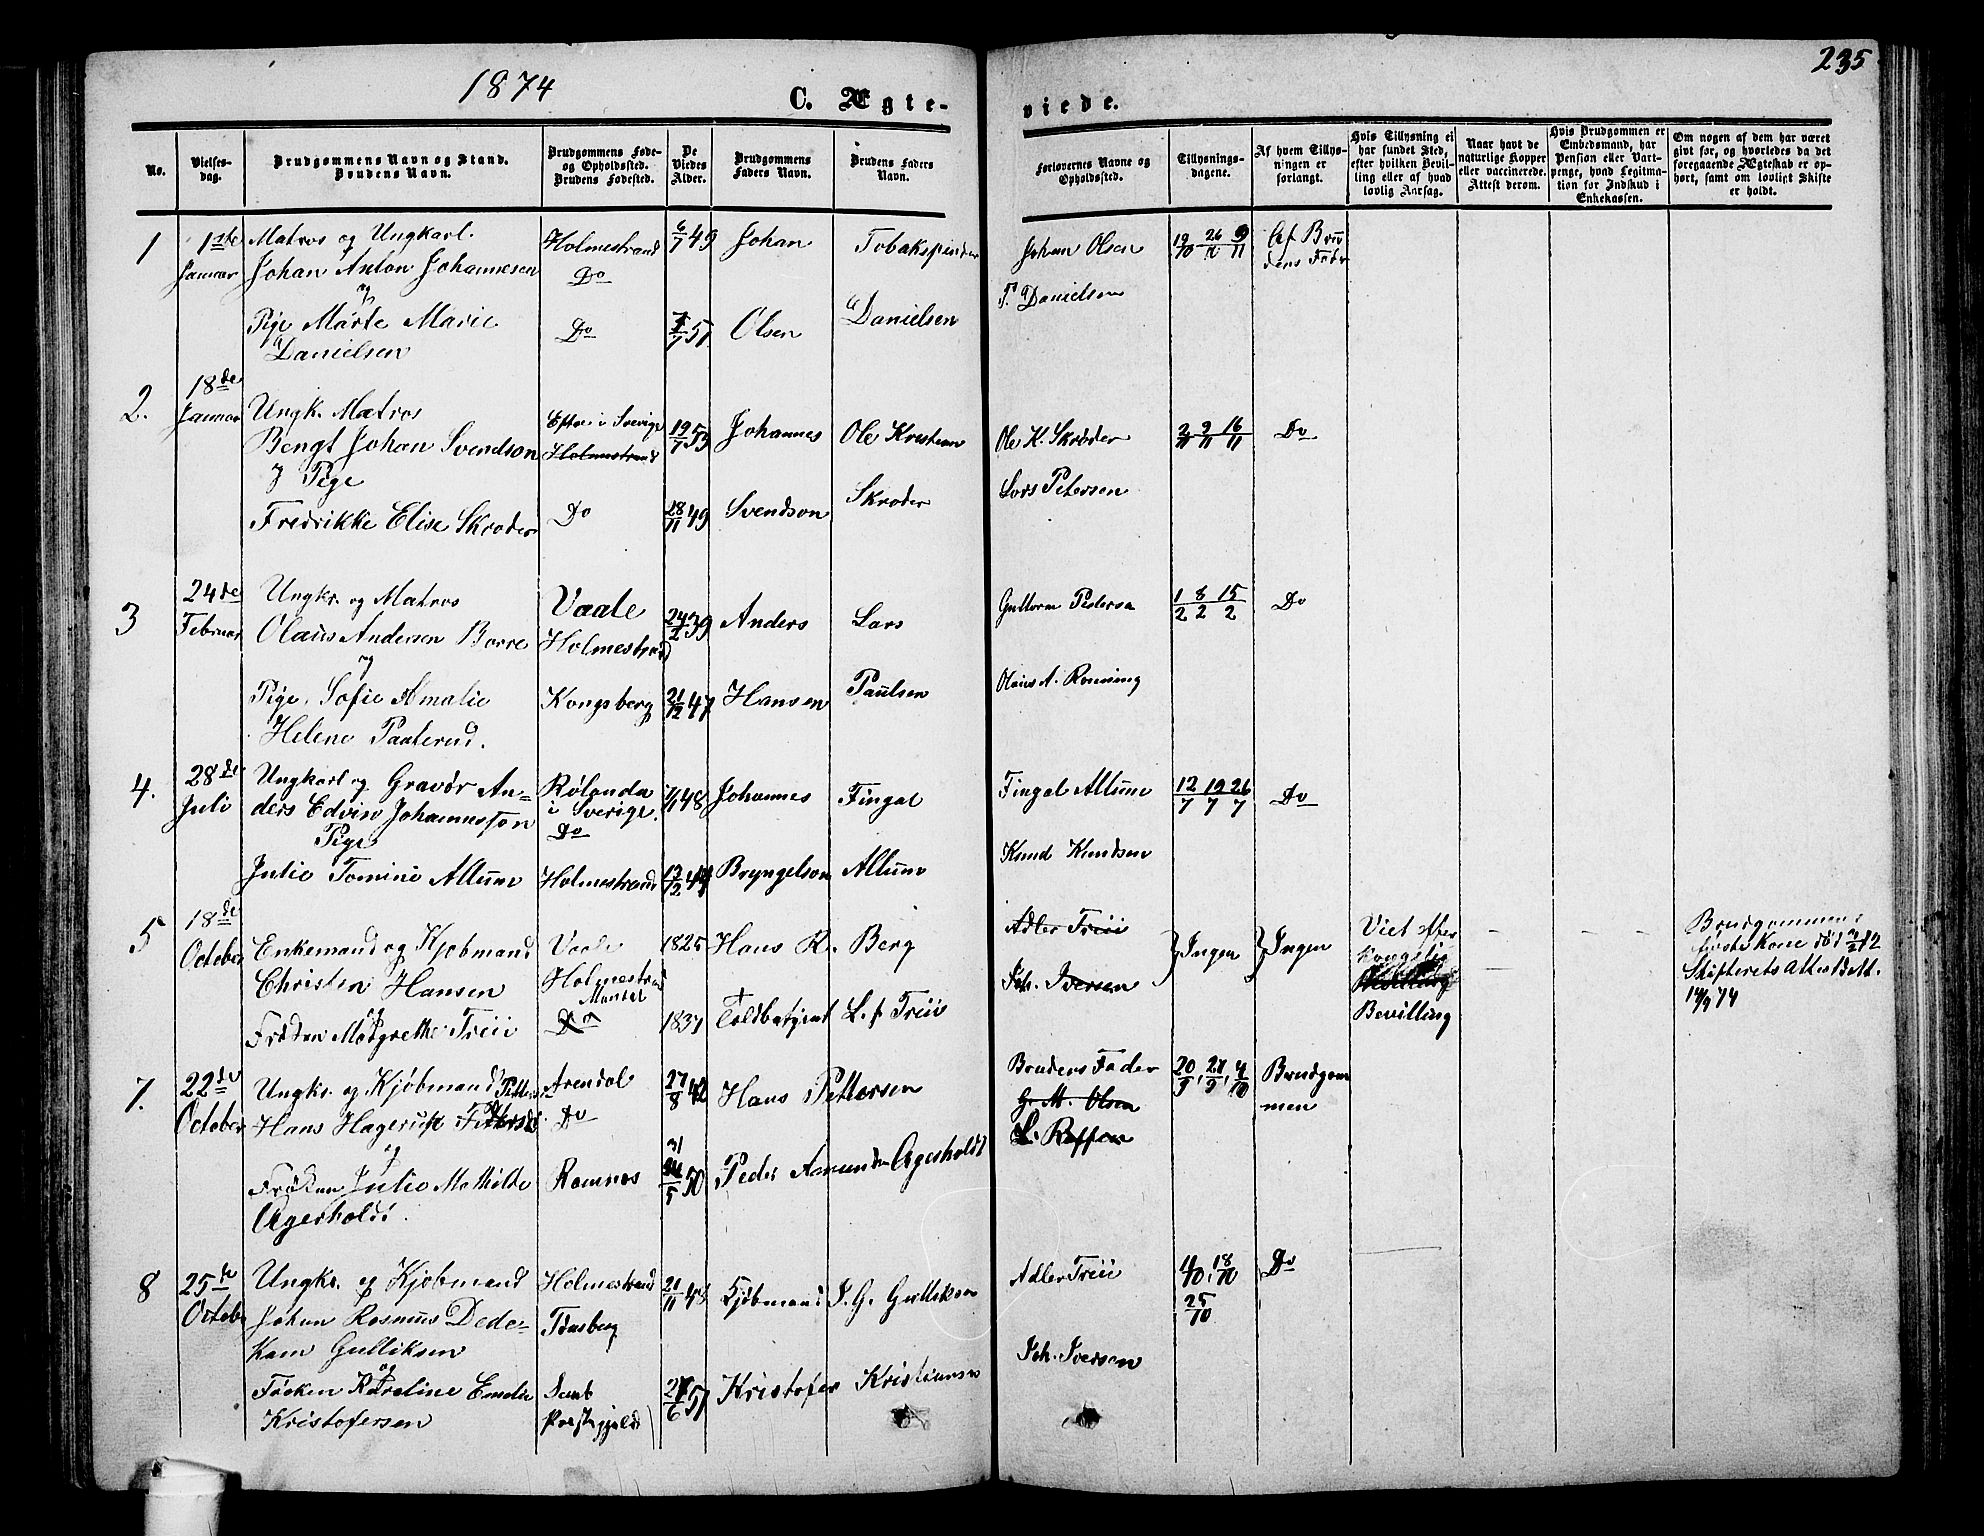 1874
C. Ægte-
viede.
235
No.
Vielses-
dag.
Brudgommens Navn og Stand.
Brudens Navn.
Brudgommens Føde-
og Opholdssted.
Brudens Fødested.
De
Viedes
Alder.
Brudgommens
Faders Navn.
Brudens Faders
Navn.
Forlovernes Navne og
Opholdssted.
Tillysnings-
dagene.
Af hvem Tillys-
ningen er
forlangt.
Hvis Tillysning ei
har fundet Sted,
efter hvilken Bevil-
ling eller af hvad
lovlig Aarsag.
Naar havt de
naturlige Kopper
eller vaccinerede.
Attest derom.
Hvis Brudgommen er
Embedsmand, har
Pension eller Vart-
penge, hvad Legitima-
tion for Indskud i
Enkekassen.
Om nogen af dem har været
givt for, og hvorledes da det
foregaaende Ægteskab er op-
hørt, samt om lovligt Skifte
er holdt.
1
1ste
Januar
Matros og Ungkarl.
Johan Anton Johannesen
og
Pige Marte Marie
Danielsen
Holmestrand
Do
Do
6/7 49
7/7 51
Johan
Olsen
Tobakspinder
Danielsen
Johan Olsen
Danielsen
19/10 26/10 9/11
Af Bru
dens Fader
2.
18de
Januar
Ungk. Matros
Bengt Johan Svendson
og Pige
Fredrikke Elise Skroder
i Sverige
Holmestrand
Do
19/7 53
28/11 49
Johannes
Svendson
Ole Kristian
Skroder
Ole K. Skrøder
Lars Petersen
2/11 9/11 16/11
Do
3
24de
Februar
Ungkr. og Matros
Olaus Andersen Borre
og
Pige Sofie Amalie
Helene Paaterud.
Vaale
Holmestrand
Kongsberg
24/2 39
21/12 47
Anders
Hansen
Lars
Paulsen
Guttorm Pedersen
Olaus A. Ronning
1/2 8/2 15/2
Do
4.
28de
Juli
Ungkarl og Gravør An-
ders Edvin Johannesson
Pige
Julie Tomine Allum
Rølanda
i Sverige.
Do
Holmestrand
1/1 48
Johannes
Bryngelson
Fingal
Allum
Fingal Allum
Knud Knudsen
12/7 19/7 26/7
Do
5
18de
October
Enkemand og Kjøbmand
Christen Hansen
og
Frøken Margrethe Treu
Vaale
Holmestrand
Mandal
Do
1825
1837
Hans R. Berg
Toldbetjent L. f Treu
Adler Treu
Joh. Iversen
Ingen
Ingen
Viet efter
kongelig
Bevilling
Brudgommens
første Kone død
Skifterets Attest
14/9 74
7.
22de
October
Ungkr. og Kjøbmand
Hans Hagerup Pettersen
og
Frøken Julie Mathilde
Agerholdt.
Arendal
Do
Ramnes
27/8 42
31/5 50
Hans Pettersen
Peder Amund Agerholdt
Brudens Fader
G. M. Olsen
20/9, 27/9, 4/10
Brudgom
men
8
25de
October
Ungkr. og Kjøbmand
Johan Rasmus Dede-
kam Gulliksen
og
Frøken Karoline Emelie
Kristofersen
Holmestrand
Tønsberg
Præstegjeld
21/11 48
Kjøbmand J. G. Gulliksen
Kristofer Kristiansen
Adler Treu
Joh. Iversen
4/10, 18/10
25/10
Do